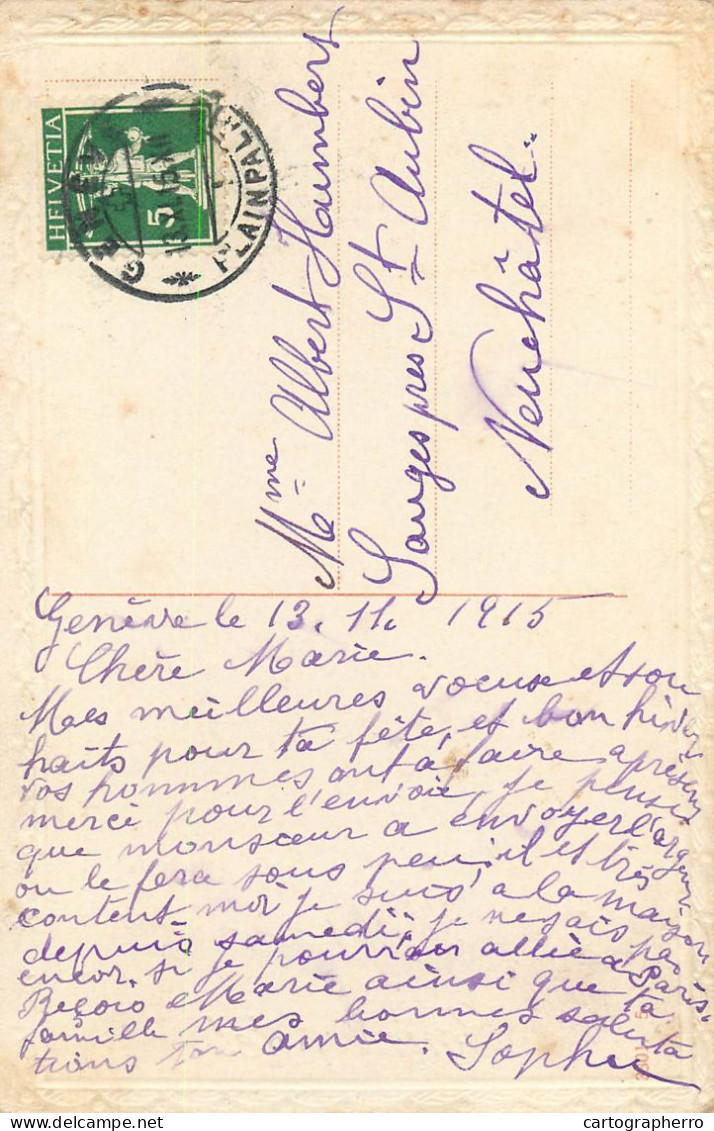 HELVETIA
5
PLAINPALAIS
Mme Albert Humbert
Sauges pres St Aubin
Neuchâtel.
Genève le 13. 11. 1915
Chère Marie.
Mes meilleures voeux et sou
haits pour ta fête, et bon hiver
vos hommmes ont à faire apresent
merci pour l'envoie, je pense
que monsœur a envoyer l'argent
ou le fera sous peu, il et très
content moi je suis a la maison
depuis samedi, je ne sais pas
encor. si je pourrai allié a Paris.
Reçois Marie ainsi que ta
famille mes bonnes saluta
tions ton amie. Sophie
delcampe.net
cartographerro